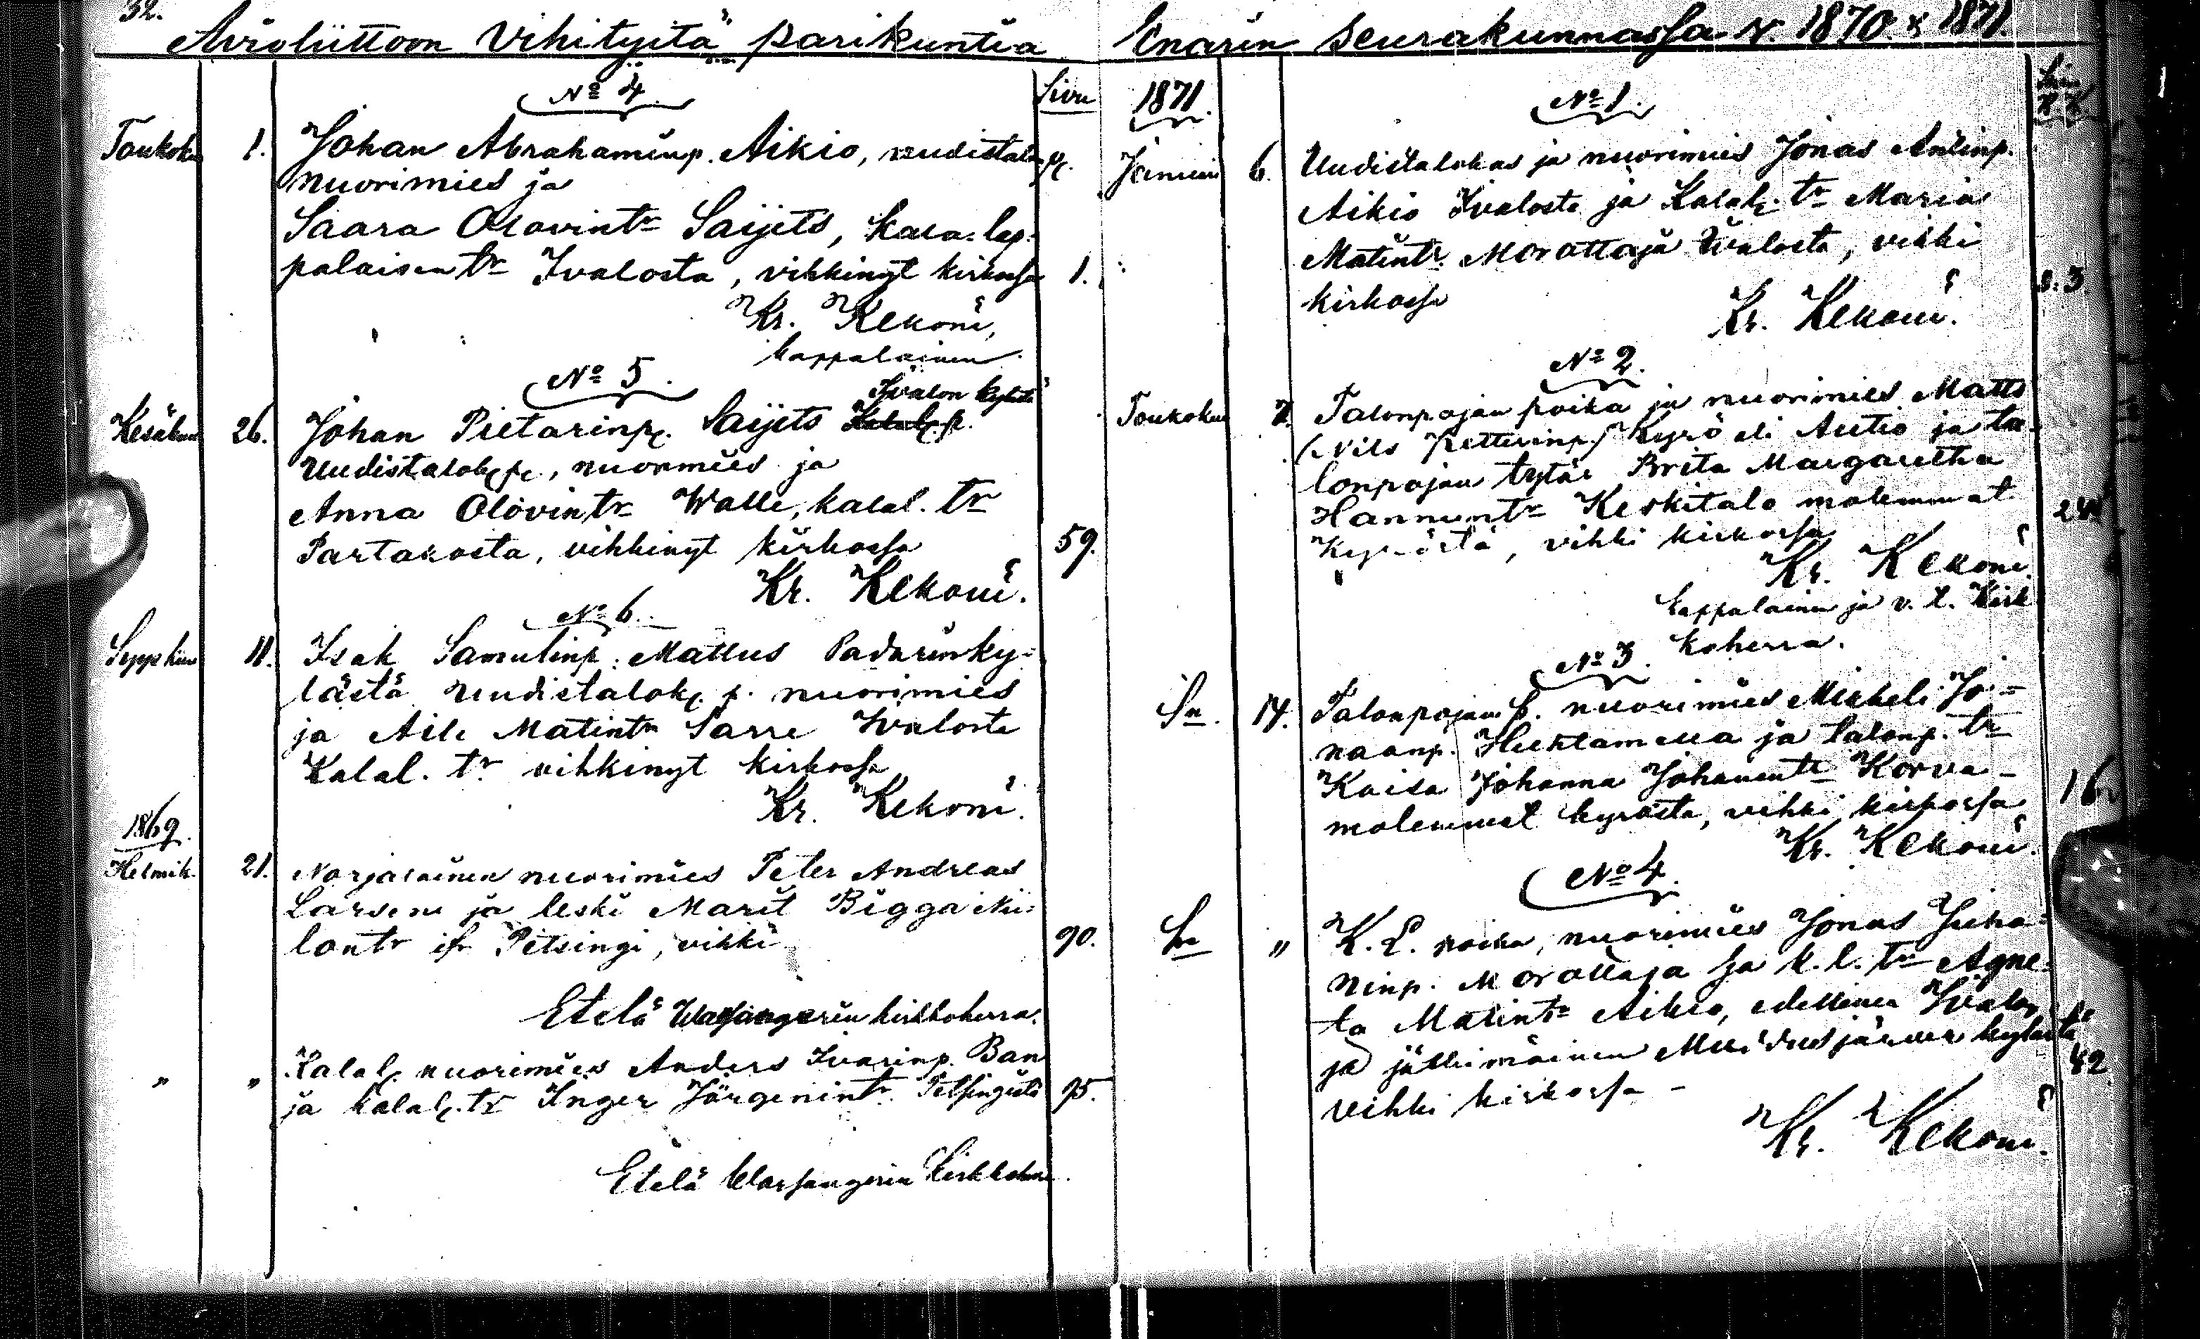 32.
Avioliittoon Vihityitä parikuntia
Sivu
No 4.
Toukoku 1. Johan Abrahaminp. Aikio, uudistalok p.
nuorimies ja
Saara Olovintr Saijets, kala-lap-
palaisen tr Ivalosta, vihkinyt kirkossa 1.
Kr. Kekoni,
kappalainen.
No 5.
Ivalon kylästä
Kesäkuu 26. Johan Pietarinp. Saijets Kalal. p.
Uudistalok. p., nuorimies ja
Anna Olovintr Walle, kalal. tr
Partakosta, vihkinyt kirkossa 59.
Kr. Kekoni.
No 6.
Syyskuu 11. Isak Samulinp. Mattus Padarinky-
lästä uudistalok. p. nuorimies
ja Aile Matintr Sarre Ivalosta
Kalal. tr vihkinyt kirkossa
Kr. Kekoni.
1869.
Helmik. 21. Norjalainen nuorimies Peter Andreas
Larsen ja leski Marit Bigga Nii-
lontr Petsingi, vihki 90.
Etelä Warjangerin kirkkoherra.
" " Kalal. nuorimies Anders Ivarinp. Ban
ja kalal. tr Inger Jörgenintr Petsingistä 95.
Etelä Warjangerin Kirkkoherra.
Enarin seurakunnassa v. 1870 & 1871.
1871.
Sivu
R. K.
No 1.
6. Uudistalokas ja nuorimies Jonas Antinp.
Aikio Ivalosta ja Kalal. tr Maria
Matintr Morottaja Ivalosta, vihki
kirkossa S. 3.
Kr. Kekoni.
No 2.
Toukokuu 7. Talonpojan poika ja nuorimies Matts
(Nils Petterinp.) Kyrö eli Autio ja ta-
lonpojan tytär Brita Margaretha
Hannuntr Keskitalo molemmat 244
Kyröstä, vihki kirkossa
Kr. Kekoni
kappalainen ja v. t. Kirk-
koherra.
No 3.
Sn. 14. Talonpojan p. nuorimies Mikkeli Jo-
naanp. Huhtamella ja talonp. tr
Kaisa Johanna Johanintr Korva-
molemmat kyröstä, vihki kirkossa 16.
Kr. Kekoni.
No 4.
Sn " K. L. poika, nuorimies Jonas Juha-
ninp. Morottaja ja k. l. tr Agne-
ta Matintr Aikio, edellinen Ivalon
ja jälkimäinen Muddusjärven kylästä
vihki kirkossa - 42
Kr. Kekoni.